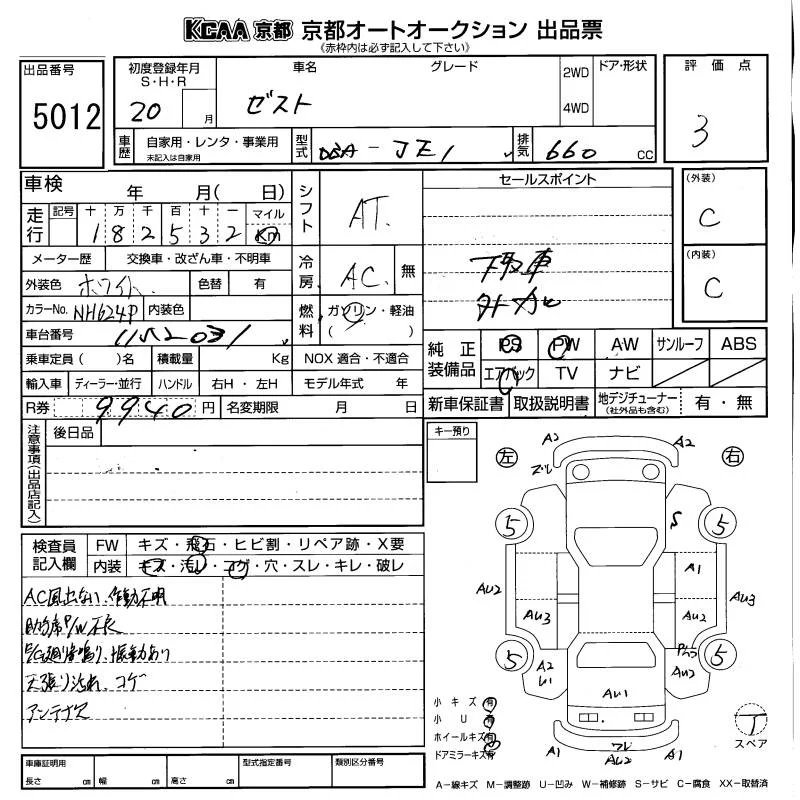 KCAA 京都 京都オートオークション 出品票
《赤枠内は必ず記入して下さい》
出品番号
5012
初度登録年月
S・H・R
20 月
車名
ゼスト
グレード
2WD
4WD
ドア・形状
評価点
3
車歴
自家用・レンタ・事業用
未記入は自家用
型式
DBA-JE1
排気
660 CC
車検 年 月( 日)
走行
記号 十 万 千 百 十 一 マイル
1 8 2 5 3 2 km
シフト
AT.
セールスポイント
下取車
(外装)
C
(内装)
C
メーター歴 交換車・改ざん車・不明車
外装色 ホワイト 色替 有
冷房
AC. 無
カラーNo. NH624P 内装色
燃料
ガソリン・軽油
( )
車台番号
1152031
純正装備品
PS PW AW サンルーフ ABS
エアバック TV ナビ
乗車定員 ( )名 積載量 Kg NOX 適合・不適合
輸入車 ディーラー・並行 ハンドル 右H・左H モデル年式 年
新車保証書 取扱説明書 地デジチューナー(社外品も含む) 有・無
R券 9940 円 名変期限 月 日
注意事項(出品店記入)
後日品
キー預り
左
右
検査員記入欄
FW キズ・飛石・ヒビ割・リペア跡・X要
内装 キズ・汚レ・コゲ・穴・スレ・キレ・破レ
AC風出ない、作動不明
助手席P/W不良
E/G廻り異音鳴り、振動あり
天張り汚れ、コゲ
アンテナ欠
A2
A2
ズレ
S
5
5
A1
AU2
AU3
AU2
AU3
5
5
A2
AU2
AU1
小キズ 有
小U 有
ホイールキズ 有
ドアミラーキズ 有
A1
A1
AU2
T
スペア
車庫証明用
長さ cm 幅 cm 高さ cm
型式指定番号
類別区分番号
A－線キズ M－調整跡 U－凹み W－補修跡 S－サビ C－腐食 XX－取替済